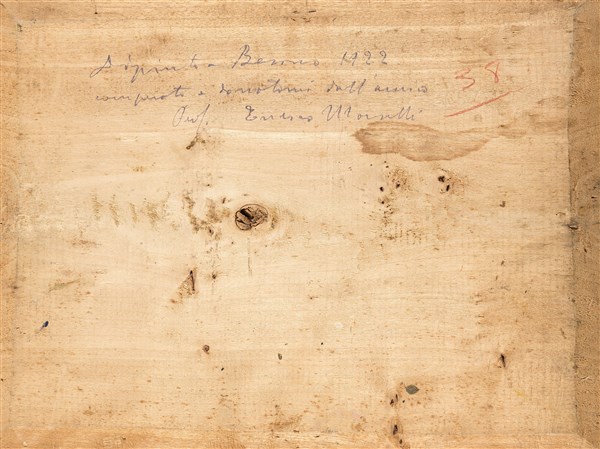 Dipinto a Besano 1922
comprato e donatomi dall'amico
Prof. Enrico Morselli
38